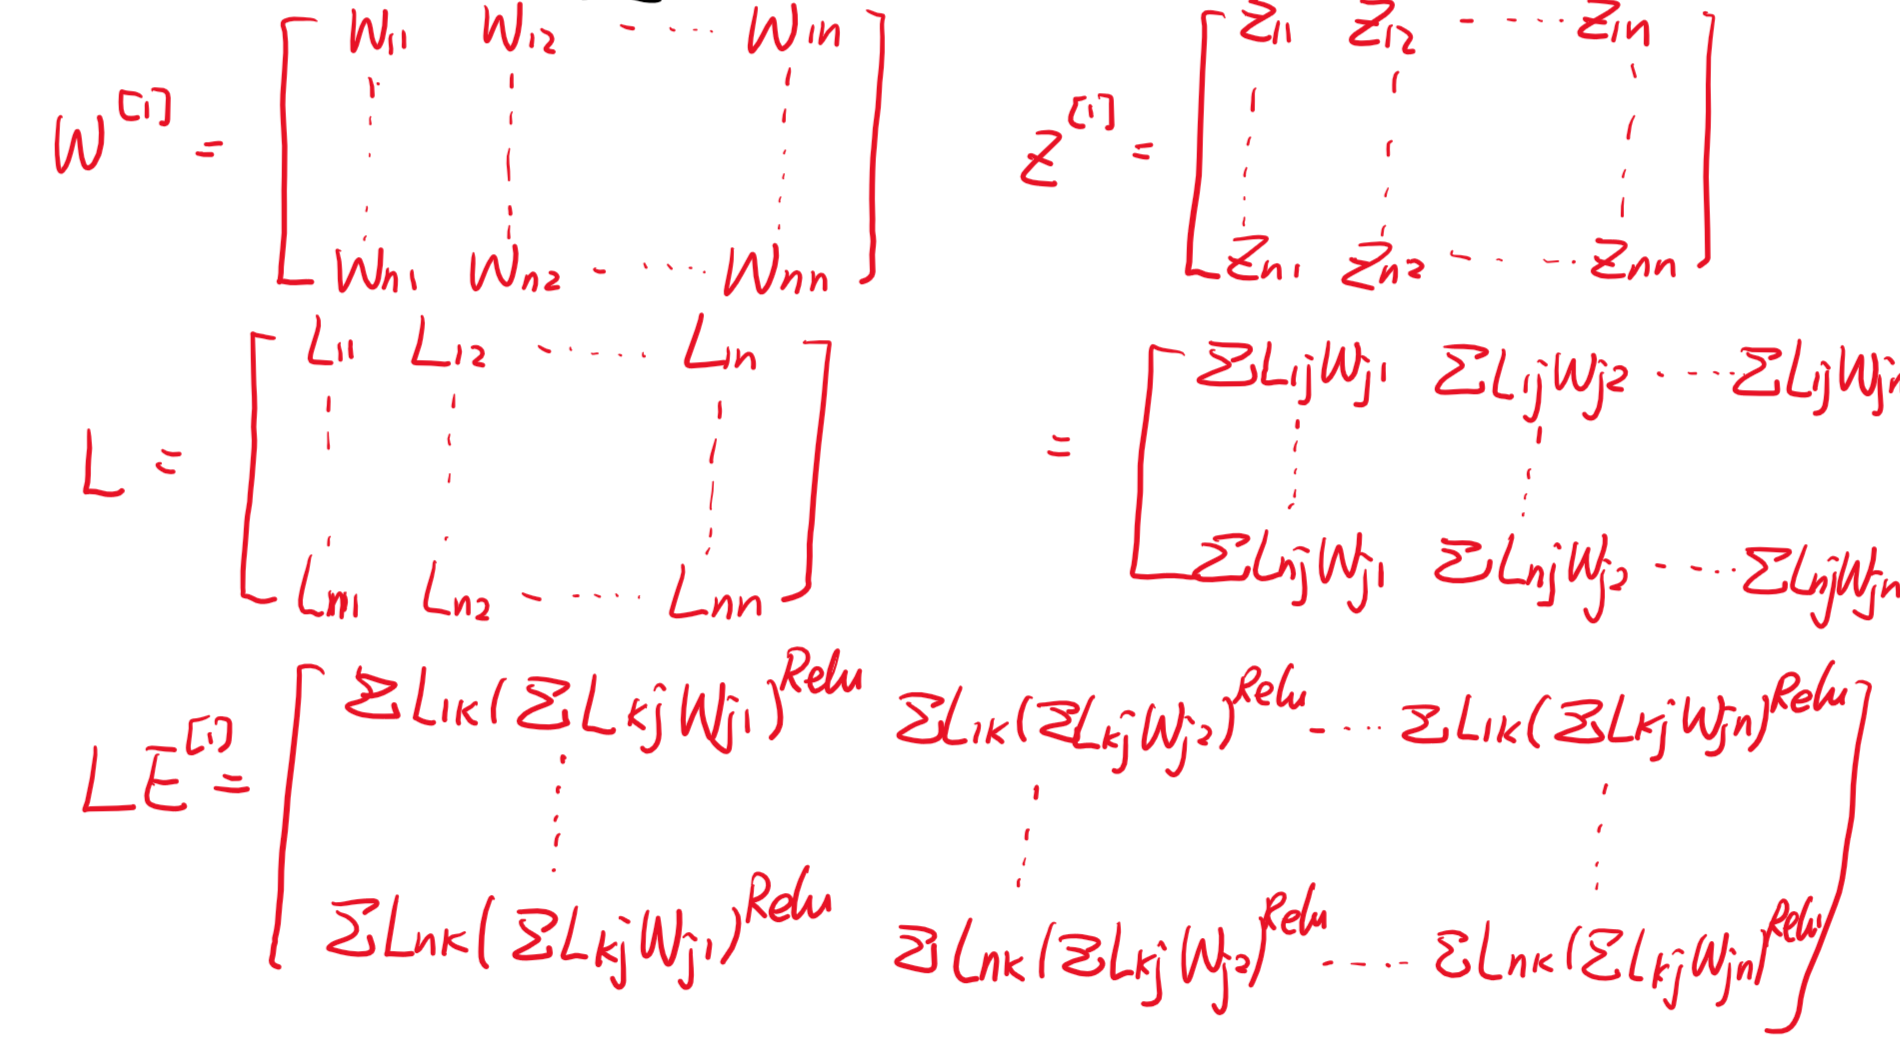 W^[1] = [ W11 W12 - ···· W1n
Wn1 Wn2 - ····· Wnn ]
Z^[1] = [ Z11 Z12 - - ···· Z1n
Zn1 Zn2 - - - ··· Znn ]
L = [ L11 L12 - ····· L1n
Ln1 Ln2 - ····· Lnn ]
= [ ΣL1jWj1 ΣL1jWj2 · - ···· ΣL1jWjn
ΣLnjWj1 ΣLnjWj2 - - ···· ΣLnjWjn
LE^[1] = [ ΣL1K(ΣLKjWj1)^Relu ΣL1K(ΣLKjWj2)^Relu - - ···· ΣL1K(ΣLKjWjn)^Relu
ΣLnK(ΣLKjWj1)^Relu ΣLnK(ΣLKjWj2)^Relu - ···· - ΣLnK(ΣLKjWjn)^Relu ]